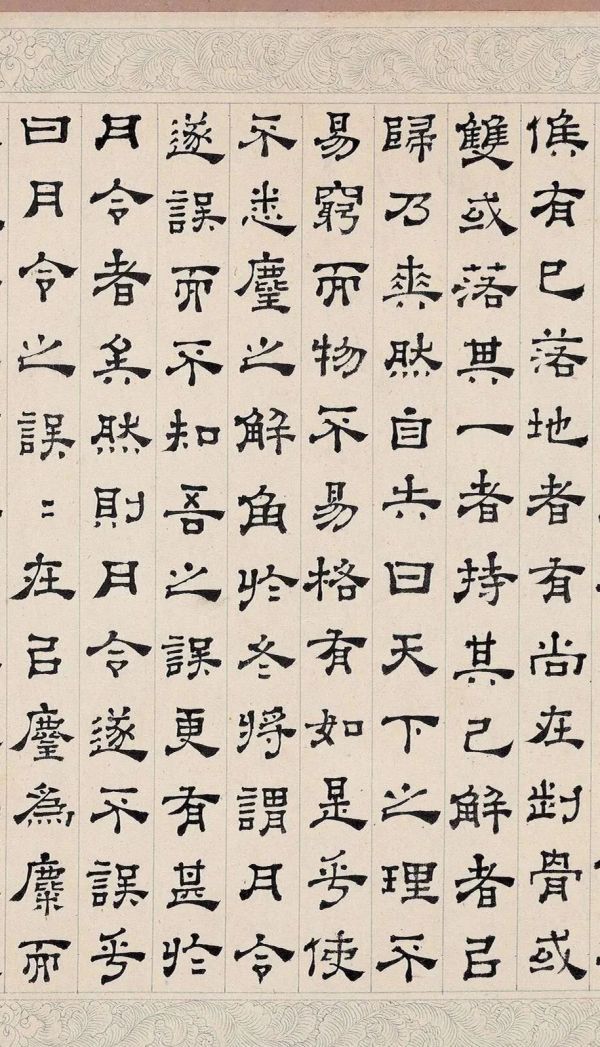 候有已落地者有尚在骨或
雙或落其一者持其已解者以
歸乃爽然自失曰天下之理不
易窮而物不易格有如是乎使
不悉麈之解角於冬將謂月令
遂誤而不知吾之誤更有甚於
月令者矣然則月令遂不誤乎
曰月令之誤〻在以麈為麋而